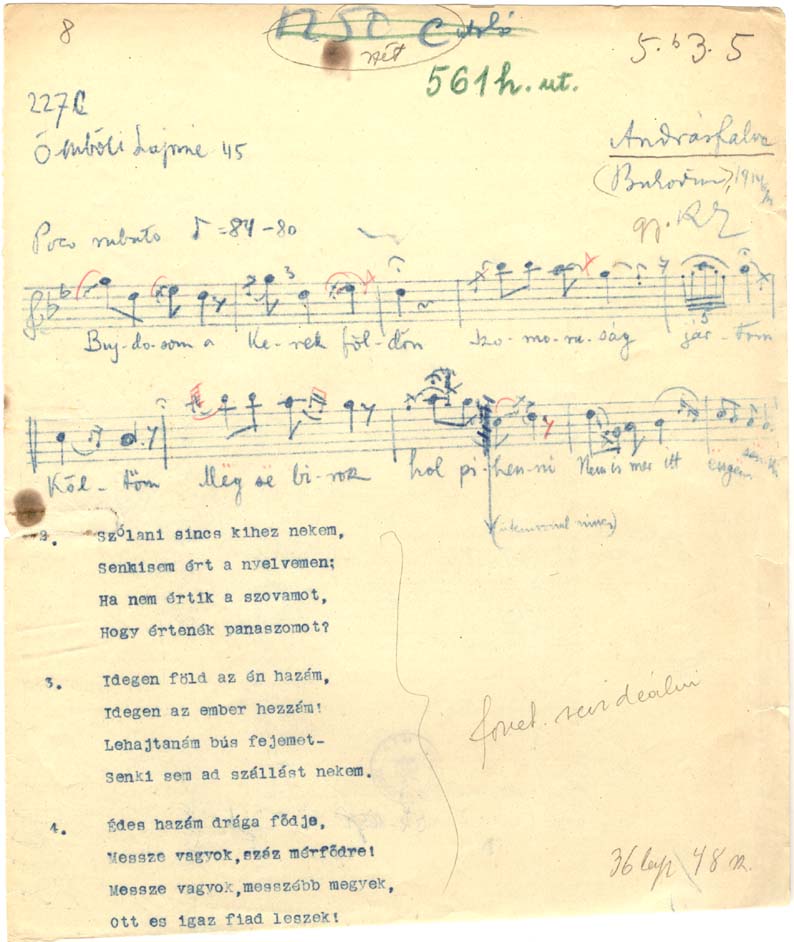 8
5. b3. 5
561h. ut.
227
Lajosné 45
Andrásfalva
Poco rubato = 84-80
3
Buj-do-som a Ke-rek föl-dön Szo-mo-ru-ság jár-tom
5
Köl-töm Meg se bi-rok hol pi-hen-ni Nem is mer itt
2. Szólani sincs kihez nekem,
Senkisem ért a nyelvemen;
Ha nem értik a szovamot,
Hogy értenék panaszomot?
3. Idegen föld az én hazám,
Idegen az ember hezzám!
Lehajtanám bús fejemet-
Senki sem ad szállást nekem.
fonet. revideálni
4. Édes hazám drága fődje,
Messze vagyok,száz mérfődre!
Messze vagyok,messzébb megyek,
Ott es igaz fiad leszek!
36 lap 48